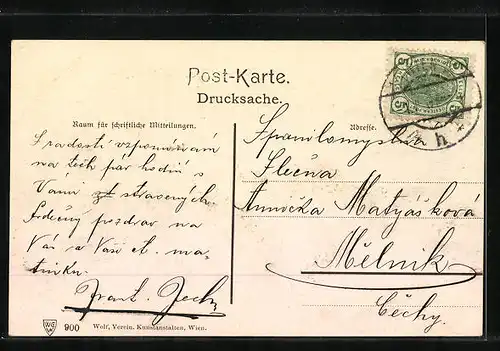 Post-Karte.
Drucksache.
Raum für schriftliche Mitteilungen.
S radostí vzpomínám
na těch pár hodin s
Vámi strávených.
Srdečný pozdrav na
Vás a Vaši ct. ma-
tinku.
Frant. Jech
Adresse.
Spanilomyslná
Slečna
Annička Matyášková
Mělník
Čechy.
5 5
5 5
h
WSW
900 Wolf, Verein. Kunstanstalten, Wien.